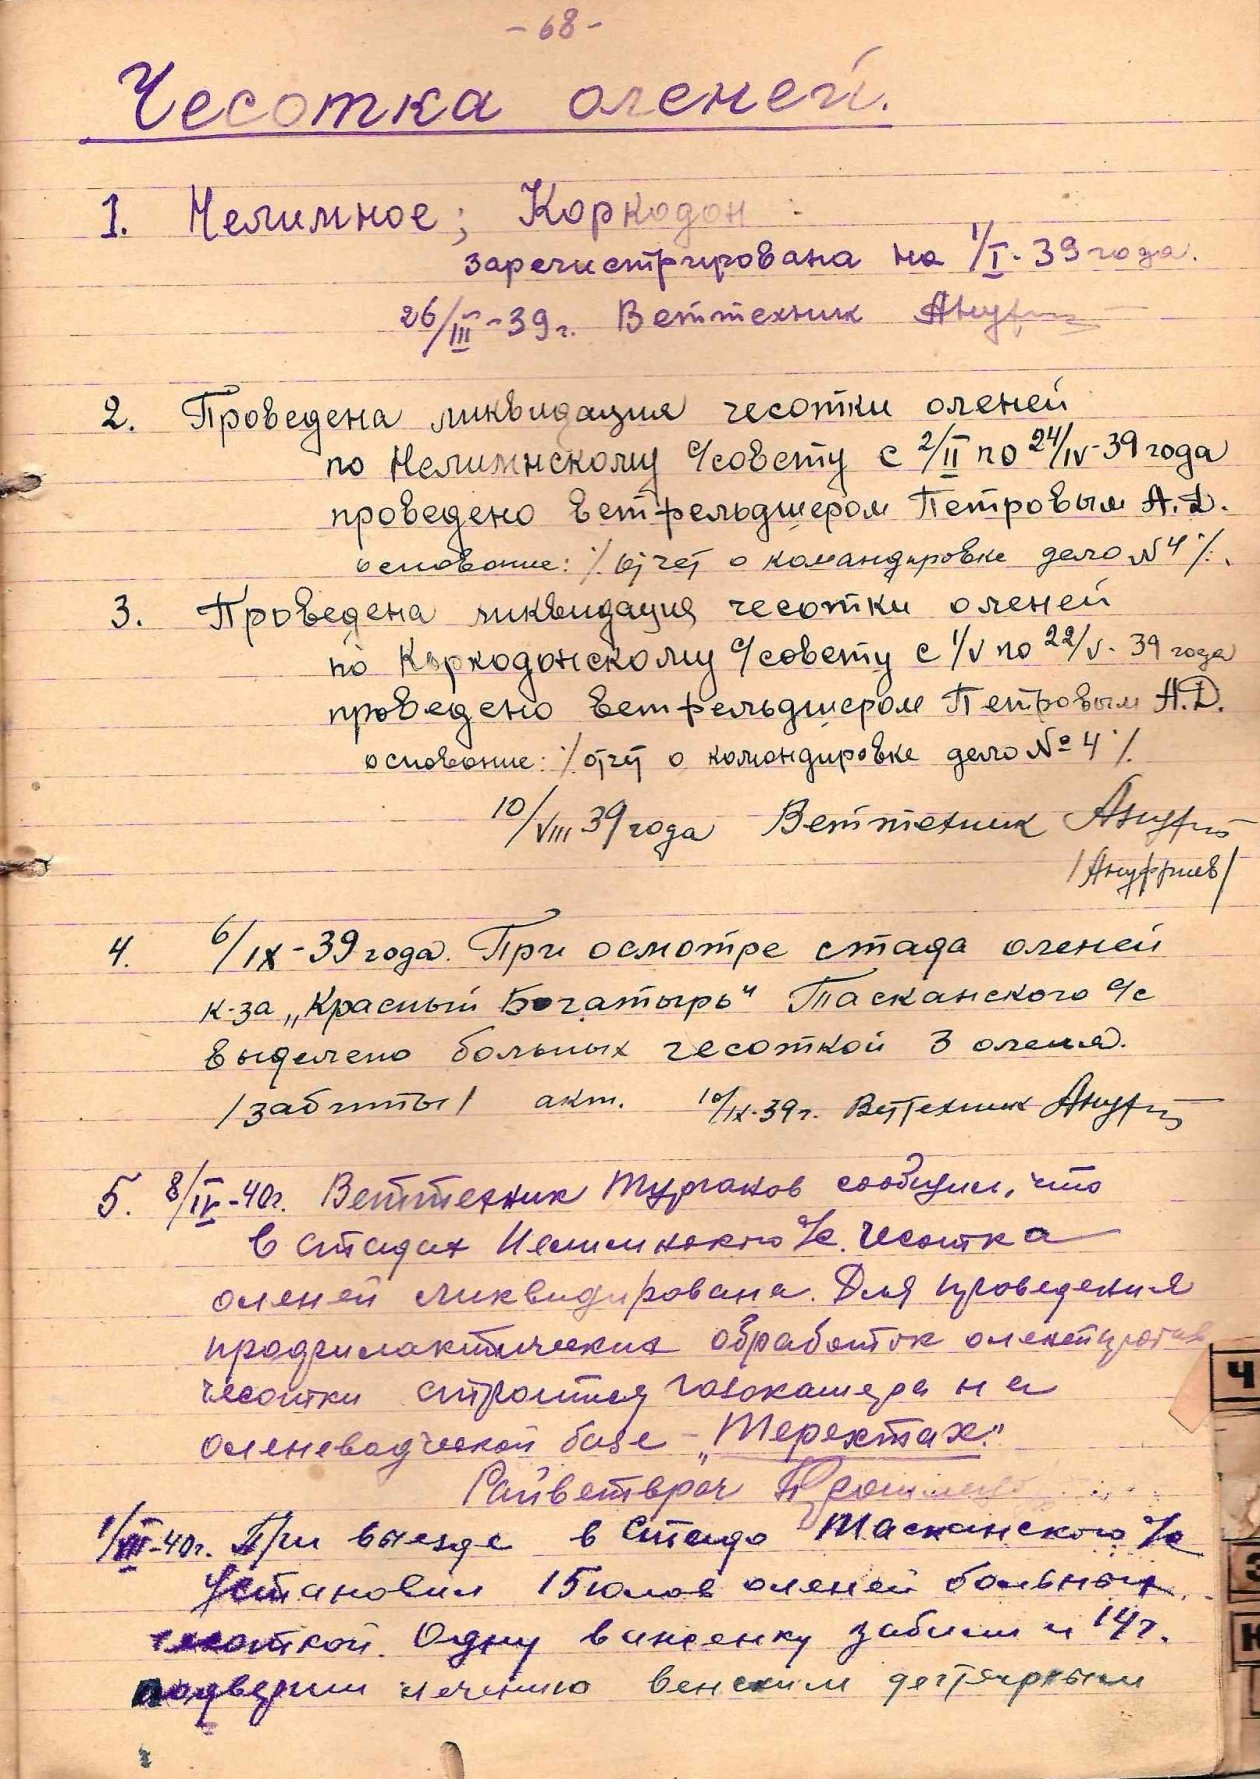 - 68 -
Чесотка оленей.
1. Нелимное; Коркодон
зарегистрирована на 1/I-39 года.
26/III-39 г. Веттехник
2. Проведена ликвидация чесотки оленей
по Нелимнскому с/совету с 2/II по 24/IV-39 года
проведено ветфельдшером Петровым А.Д.
основание: ·/· отчет о командировке дело N4 ·/·.
3. Проведена ликвидация чесотки оленей
по Коркодонскому с/совету с 1/V по 22/V-39 года
проведено ветфельдшером Петровым А.Д.
основание: ·/· отчет о командировке дело № 4 ·/·
10/VIII 39 года Веттехник
/Ануфриев/
4. 6/IX-39 года. При осмотре стада оленей
к-за „Красный Богатырь" Тасканского с/с
выделено больных чесоткой 3 оленя.
/забиты/ акт. 10/IX-39 г. Веттехник
5. 8/IV-40 г. Веттехник сообщил, что
в стадах Нелимнского с/с. чесотка
оленей ликвидирована. Для проведения
профилактических обработок олен против
чесотки строится газокамера на
оленеводческой базе - „Терехтях".
Райветврач
1/VIII-40 г. При выезде в стадо Тасканского с/с
установил 15 голов оленей больных
чесоткой. Одну важенку забили и 14 г.
подвергли лечению венским дегтярным
Ч
З
К